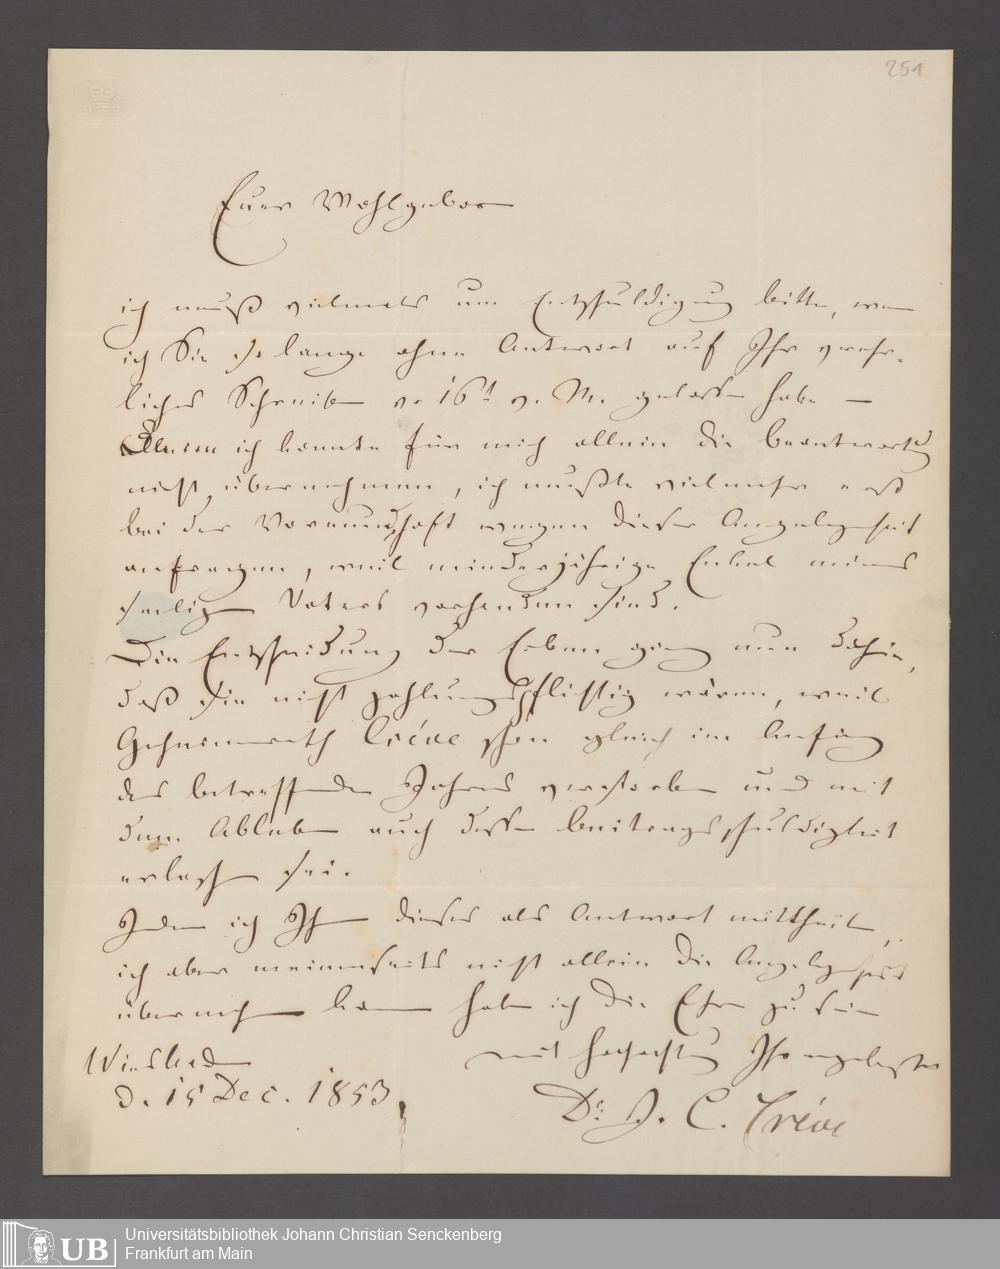 251
Euer Wohlgebor
ich muß vielmals um Entschuldigung bitten, wenn
ich Sie so lange ohne Antwort auf Ihr verehr-
liches Schreiben v. 16t v. M. gelassen habe —
Allein ich konnte für mich allein die Beantwortung
nicht übernehmen, ich mußte vielmehr erst
bei der Vormundschaft wegen dieser Angelegenheit
anfragen, weil minderjährige Enkel meines
seeligen Vaters vorhanden sind.
Die Entscheidung der Erben ging nun dahin,
daß sie nicht zahlungspflichtig wären, weil
Geheimerath Crève schon gleich im Anfang
des betreffenden Jahres verstorben und mit
dem Ableben auch dessen Beitragsschuldigkeit
erloschen sei.
Indem ich Ihnen dieses als Antwort mittheile,
ich aber meinerseits nicht allein die Angelegenheit
übernehmen kann habe ich die Ehre zu sein
mit Hochachtung Ihr
Wiesbaden
d. 15 Dec. 1853.
Dr. J. C. Crève
UB
Universitätsbibliothek Johann Christian Senckenberg
Frankfurt am Main